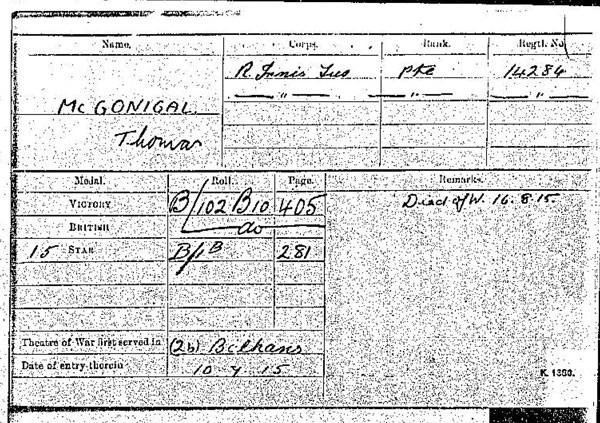 Name. Corps. Rank. Regtl. No.
R. Innis Fus Pte 14284
— " — — " — — " —
McGONIGAL
Thomas
Medal. Roll. Page. Remarks.
VICTORY B/102 B10 405 Died of W. 16.8.15
BRITISH do
15 STAR B/1B 281
Theatre of War first served in (2b) Balkans
Date of entry therein 10 7 15
K. 1380.